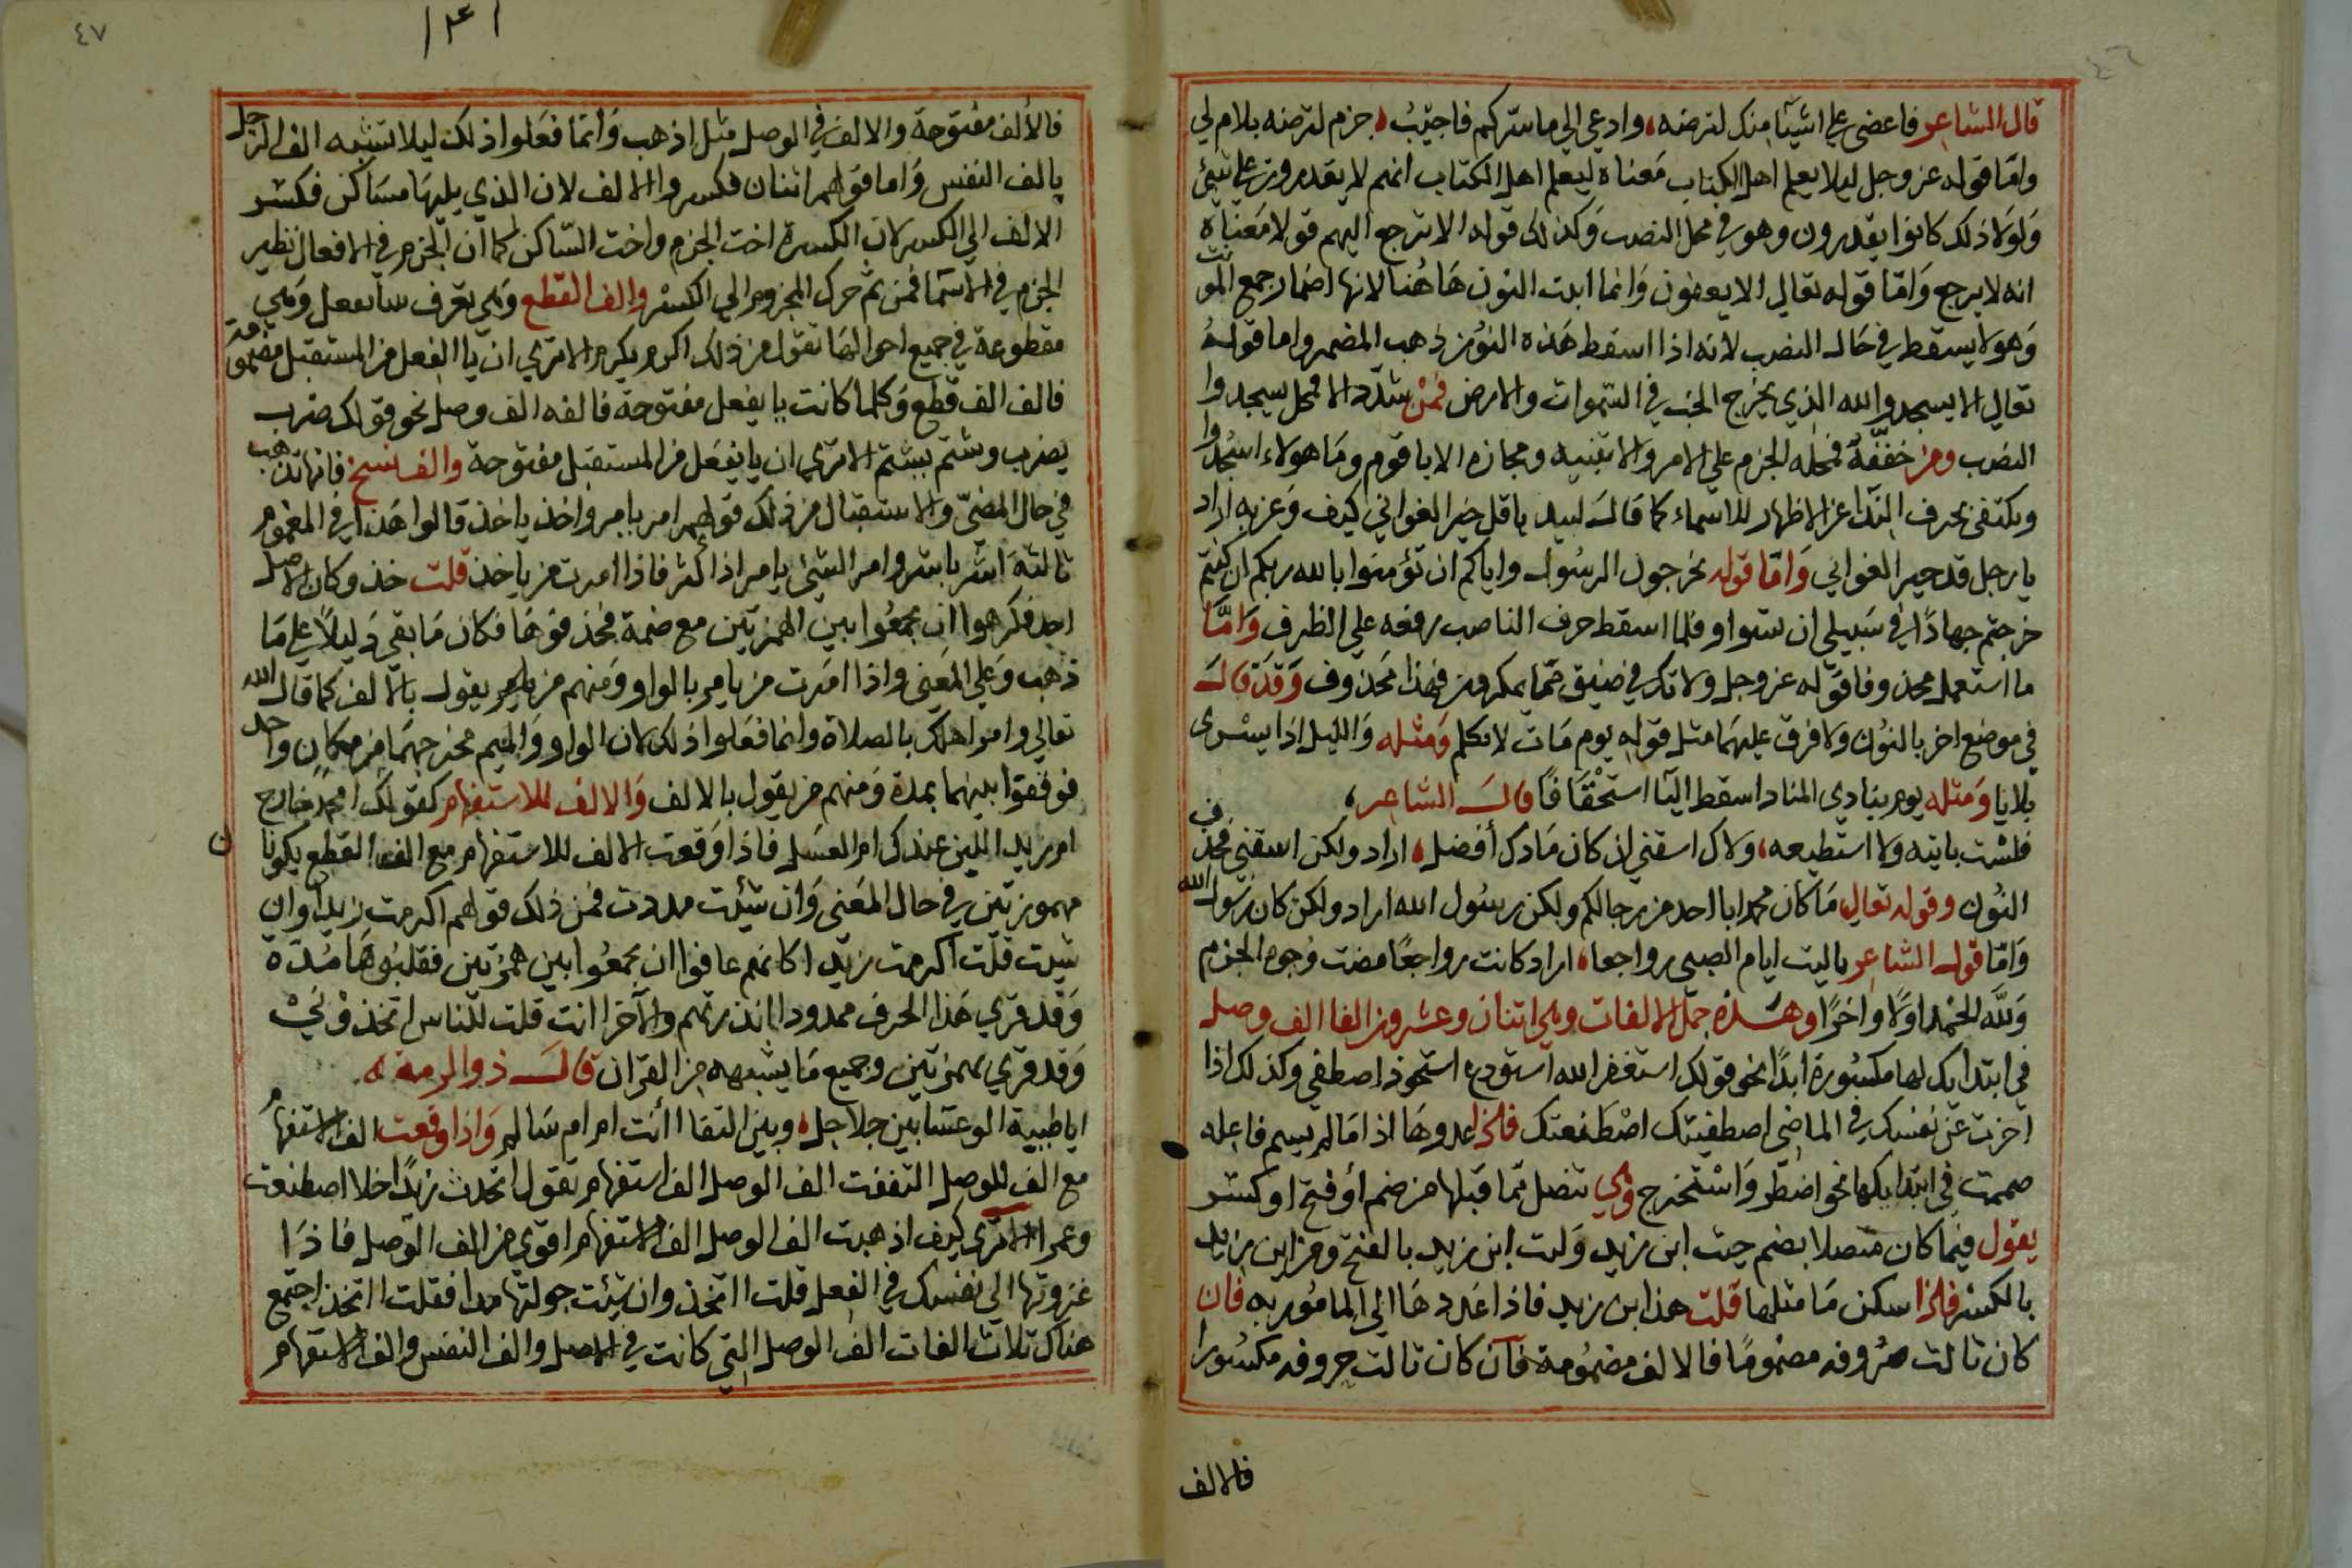 ٤٦
قال الشاعر فاعضى علي اشيآ منك لترضنه، وادعي الي ماستركم فاجيب، جزم لترضنه بلام لي
وامّا قوله عز وجل ليلا يعلم اهل الكتاب معناه ليعلم اهل الكتاب انهم لا يقدرون علي شئ
ولولا ذلك كانوا يقدرون وهو في محل النصب وكذلك قوله الا يرجع اليهم قولا معناه
انه لا يرجع وَامّا قوله تعالي الا يعفون وَانما اثبت النون هَاهُنا لانها اضمار جمع المونث
وَهو لا يسقط في حَال النصب لانه اذا اسقط هَذه النون ذهب المضمر واما قوله
تعالي الا يسجدوا لله الذي يخرج الخب في السموات والارض فمَنْ شدّد الا فمحل يسجدوا
النصب ومن خففه فمحله الجزم علي الامر والا تنبيه ومجازه الا يا قوم ومَا هولاء اسجدوا
ويكتفى بحرف النّدآ عن الاظهار للاسماء كما قالَ لبيد يا قل خير الغواني كيف وَعزبه اراد
يا رجل قد حير الغواني وَامّا قوله يخرجون الرسُول واياكم ان تؤمنوا بالله ربكم ان كنتم
خرجتم جهادًا في سَبيلي ان ستوا وفلما اسقط حرف الناصب رفعه علي الظرف وَامَّا
ما استعمل محذوفا فقوله عز وجل ولا تك في ضيق مّما يمكرون فهذا مَحذوف وَقدَ قالَ
في موضع اخر بالنوُن ولا فرق عليهمَا مثل قوله يوم يَات لا تكلم وَمثله وَالليل اذا يسْرى
بلا يا وَمثله يوم ينادي المناد اسقط اليَا استحْقَافًا قالَ الشاعر،
فلسْت باتيه ولا استطيعه، ولاك اسقني ان كان مَاوك أفضل، اراد ولكن اسقني فحذف
النوُن وقوله تعالي مَا كان محمد ابا احد من رجالكم ولكن رسُول الله اراد ولكن كان رسول الله
وَامّا قول الشاعر يا ليت ايام الصبى رواجعا، اراد كانت رواجعًا مضت وُجوه الجزم
وَلله الحمْد اولًا واخرًا وهَذه جمَل الالفات وهي اثنان وعشرون الفا الف وصل
في ابتدايك لها مكسُورة ابدًا نحو قولك استغفر الله استودع استحوذ اصطفي وكذلك اذا
اخرت عَن نفسك في الماضي اصطفيتك اصْطَنعتك فاذا عدوهَا اذا مَا لم يسم فاعله
صممت في ابتدايكها نحو اضطّر وَاسْتخرج وَهي تتصل مّما قبلها من ضم أو فتح او كسر
يقول فيما كان متصلا بضم حيث ابن زيد وَليت ابن زيد بالفتح ومن ابن زيد
بالكسر فاذا سكن مَا مثلها قلت هذا بن زيد فاذا عَددهَا الي المامُور به فان
كان ثالث حرُوفه مضمومًا فالالف مضمُومة فآن كان ثالث حروفه مكسُورا
فالالف
٤٧
١٤١
فالألف مفتوحة والالف في الوصل مثل اذهب وَانّما فعَلوا ذلك ليلا تشبه الف الرجل
بالف النفس وَاما قولهم اثنان فكسروا الالف لان الذي يليهَا مسَاكن فكسَر
الالف الي الكسر لان الكسرة اخت الجزم واخت السّاكن كما ان الجزم في الافعال نظير
الجزم في الاسَمآ فمن ثم حرك المجزوم الي الكسْر والف القطع وَهي تعرف بيا يفعل وَهي
مقطوعة في جميع احوالهَا تقول من ذلك اكرم يكرم الا تري ان يا الفعل من المستقبل مضمومة
فالف الف قطع وَكلما كانت يا يفعل مفتوحة فالفه الف وصل نحو قولك ضرب
يضرب وشتم يشتم الا تري ان يا يفعَل من المستقبل مفتوحة والف نسخ فانها تذهب
في حال المضيّ والاستقبال من ذلك قولهم امر يامر واخذ ياخذ قالوا هَذا في المغموم
ثالثهَ اشر باشر وامر الشئ يامر اذا كثر فاذا امرت من ياخذ قلت خذ وكان الاصل
اجد فكرهوا ان يجمعُوا بين الهمزتين مع ضمة فحذفوهَا فكان مَا بقي دَليلًا علي مَا
ذهَب وَعلي المعَني واذا امَرت من يامر بالواو ومَنهم من يامر يقول بالالف كما قال الله
تعالي وامر اهلك بالصلاة وانما فعَلوا ذلك لان الواو وَالميم مخرجهمَا من مكان واحد
فوفقوا بينهما بمدة وَمنهم من يقول بالالف وَالالف للاستفهام كقولك امحمد خارج
ام زيد اللبن عندك ام العسَل فاذا وَقعت الالف للاستفهام مع الف القطع يكونان
مهموزتين في حال المَعني وَان شئت مددت فمن ذلك قولهم اكرمت زيدا وان
شيت قلت اكرمت زيدا كانهم عافوا ان يجمعُوا بين همزتين فقلبُوهَا مُدَة
وَقد قري هَذا الحرف ممدودا انذرتهم والآخر اانت قلت للنّاس اتخذوني
وَقد قري بهمزتين وجميع مَا يشبهه من القران قالَ ذوالرمة له
ايا ظبية الوعسَا بين جلاجل، وبين النقا اانت ام ام سَالم وَاذا وقعت الف الاستفهام
مع الف للوصل التففت الف الوصل الف استفهام تقول اتحدث زيدًا خلا اصطنعت
وعمرا الا تري كيف اذهبت الف الوصل الف الاستفهام اقوي من الف الوصل فاذَا
غزوتها الي نفسك في الفعل قلت ااتخذ وان شئت حولتها مدا فقلت ااتخذ اجتمع
هناك ثلاث الفات الف الوصل التي كانت في الاصل والف النفس والف الاستفهام